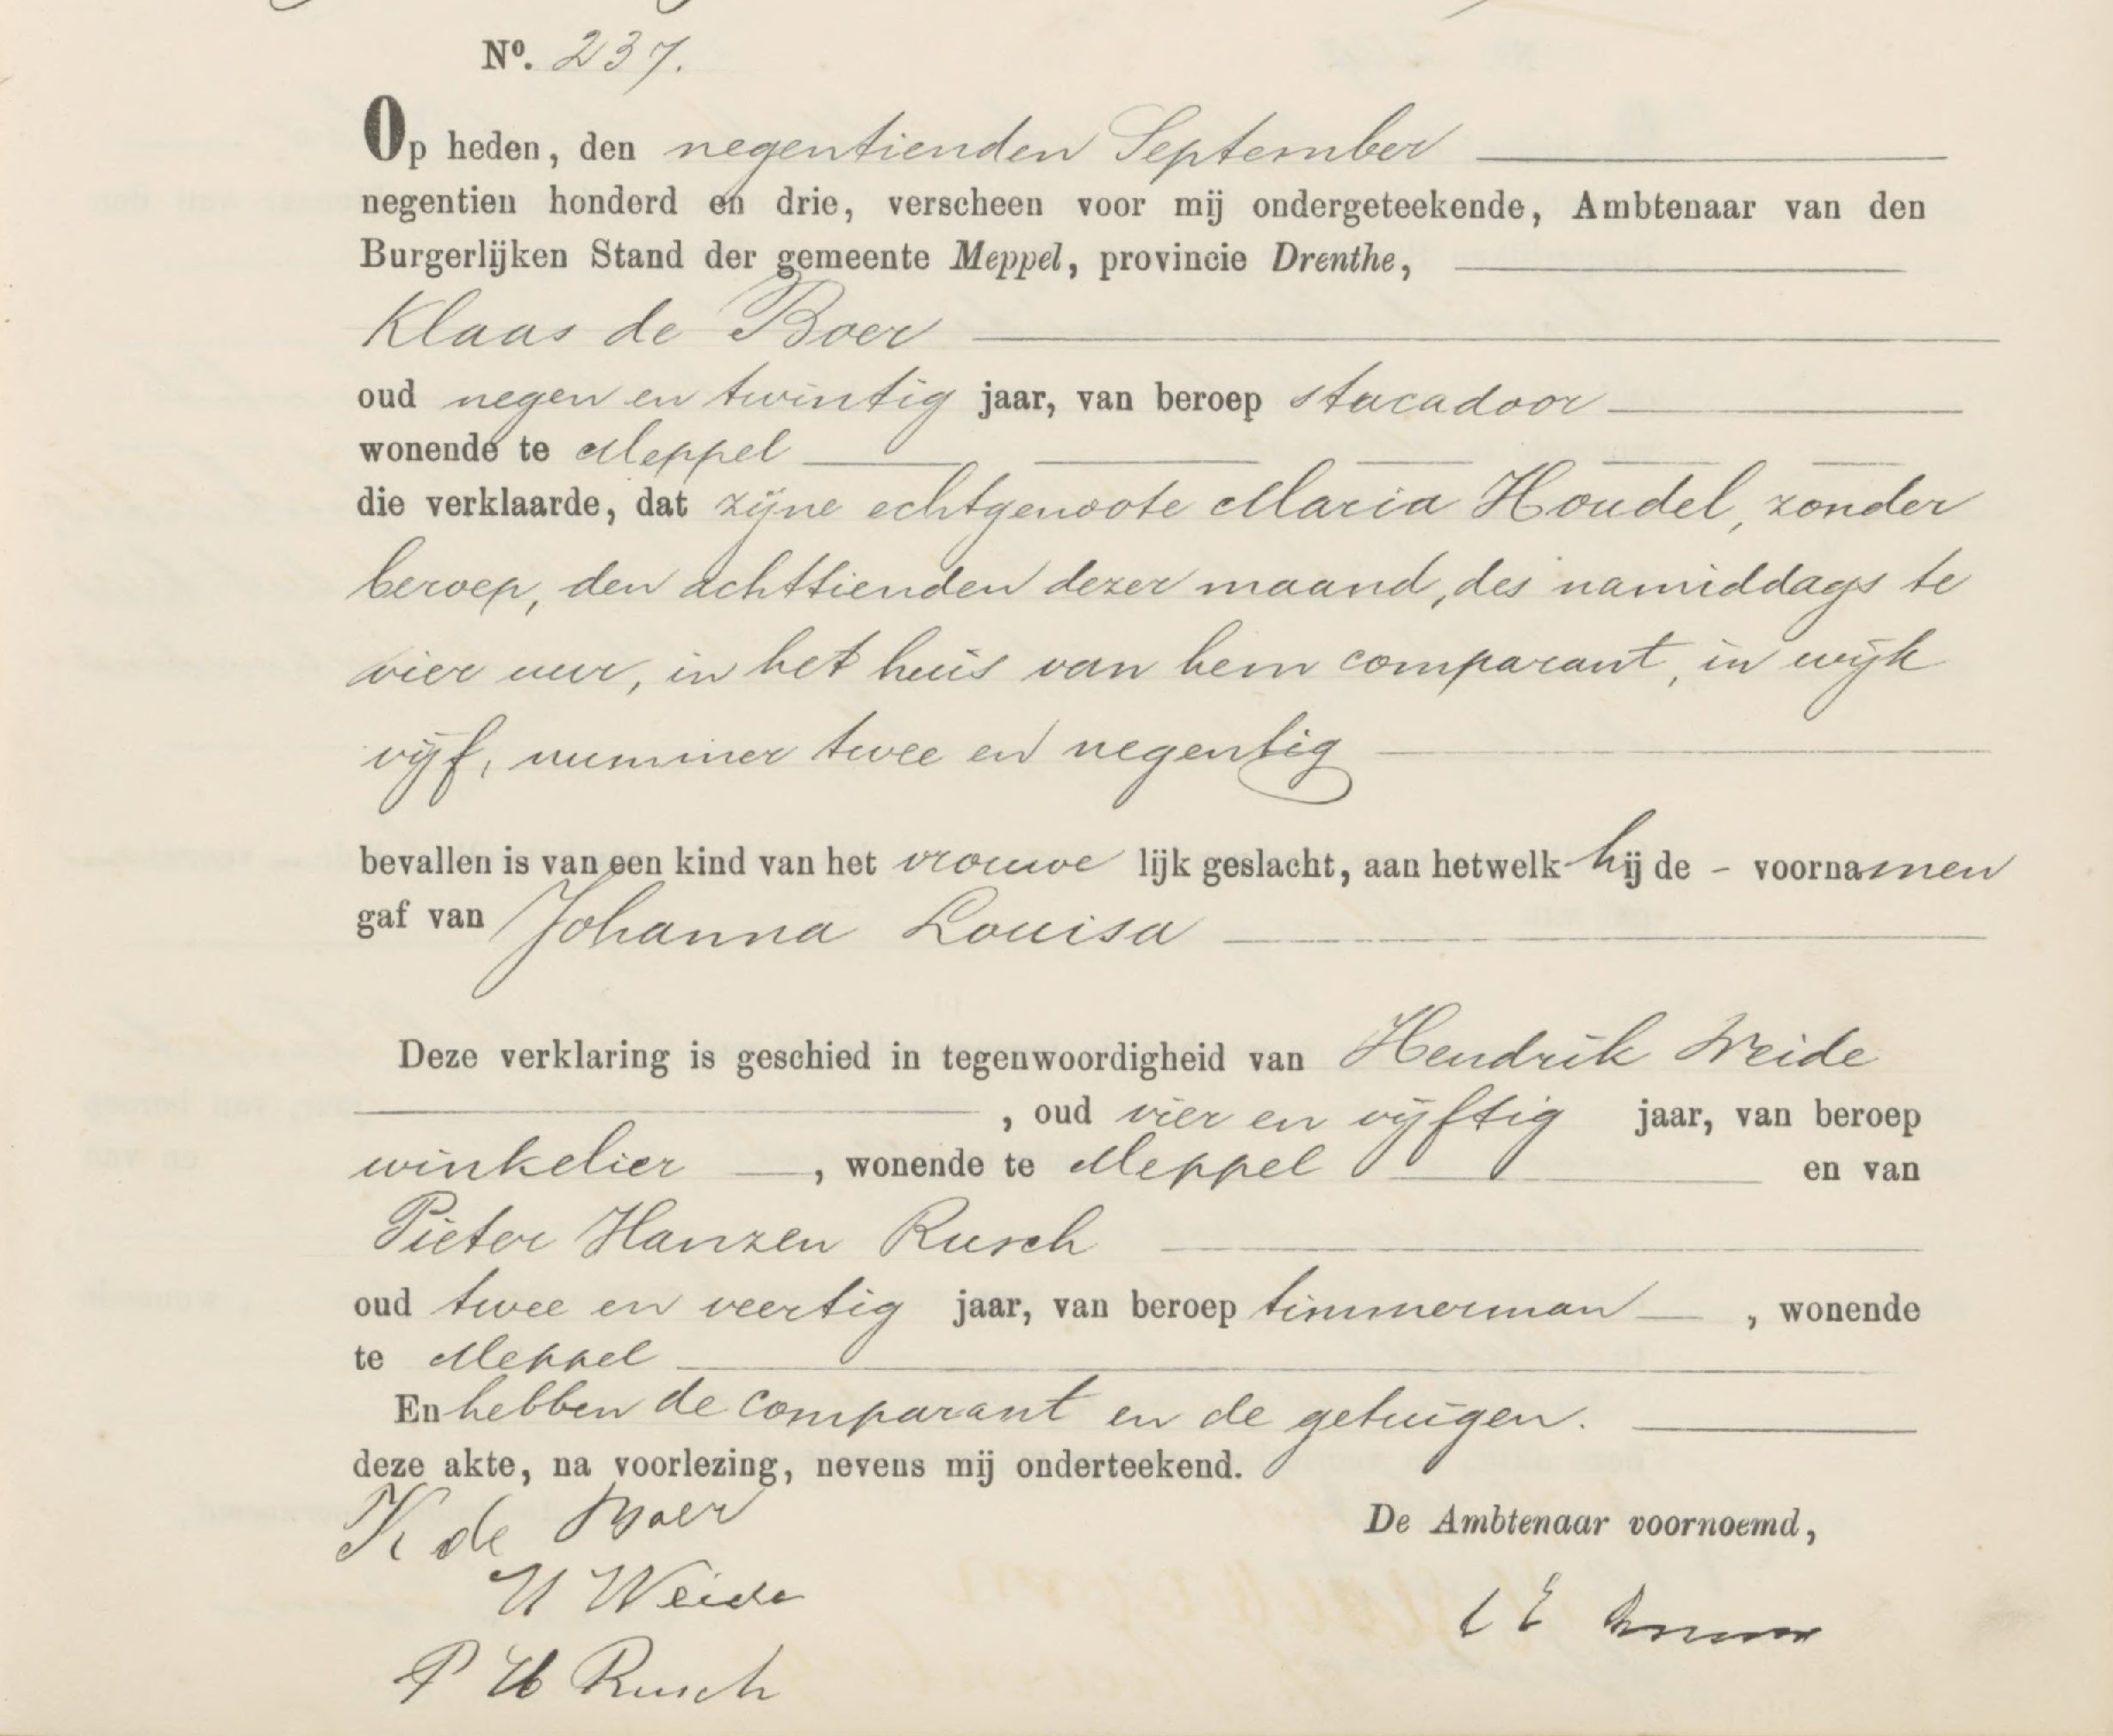 Nº. 237.
Op heden, den negentienden September
negentien honderd en drie, verscheen voor mij ondergeteekende, Ambtenaar van den
Burgerlijken Stand der gemeente Meppel, provincie Drenthe,
Klaas de Boer
oud negen en twintig jaar, van beroep stucadoor
wonende te Meppel
die verklaarde, dat zijne echtgenoote Maria Houdel, zonder
beroep, den achttienden dezer maand, des namiddags te
vier uur, in het huis van hem comparant, in wijk
vijf, nummer twee en negentig
bevallen is van een kind van het vrouwe lijk geslacht, aan hetwelk hij de - voornamen
gaf van Johanna Louisa
Deze verklaring is geschied in tegenwoordigheid van Hendrik Weide
, oud vier en vijftig jaar, van beroep
winkelier , wonende te Meppel en van
Pieter Hanzen Rusch
oud twee en veertig jaar, van beroep timmerman , wonende
te Meppel
En hebben de comparant en de getuigen.
deze akte, na voorlezing, nevens mij onderteekend.
K de Boer
De Ambtenaar voornoemd,
H Weide
P H Rusch